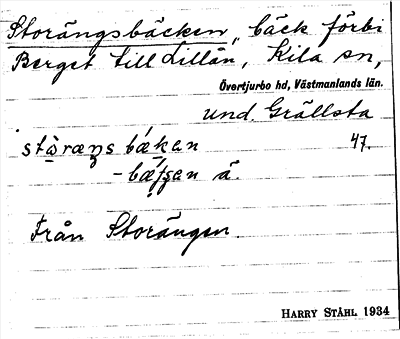 Storängsbäcken, bäck förbi
Berget till Lillån, Kila sn,
Övertjurbo hd, Västmanlands län.
und. Grällsta
47.
Från Storängen.
HARRY STÅHL 1934